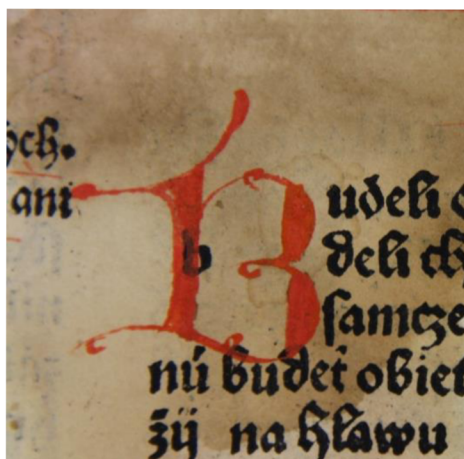 ých.
ani
Budeli o
b
deli ch
samcze
nú budeť obiet
žij na hlawu